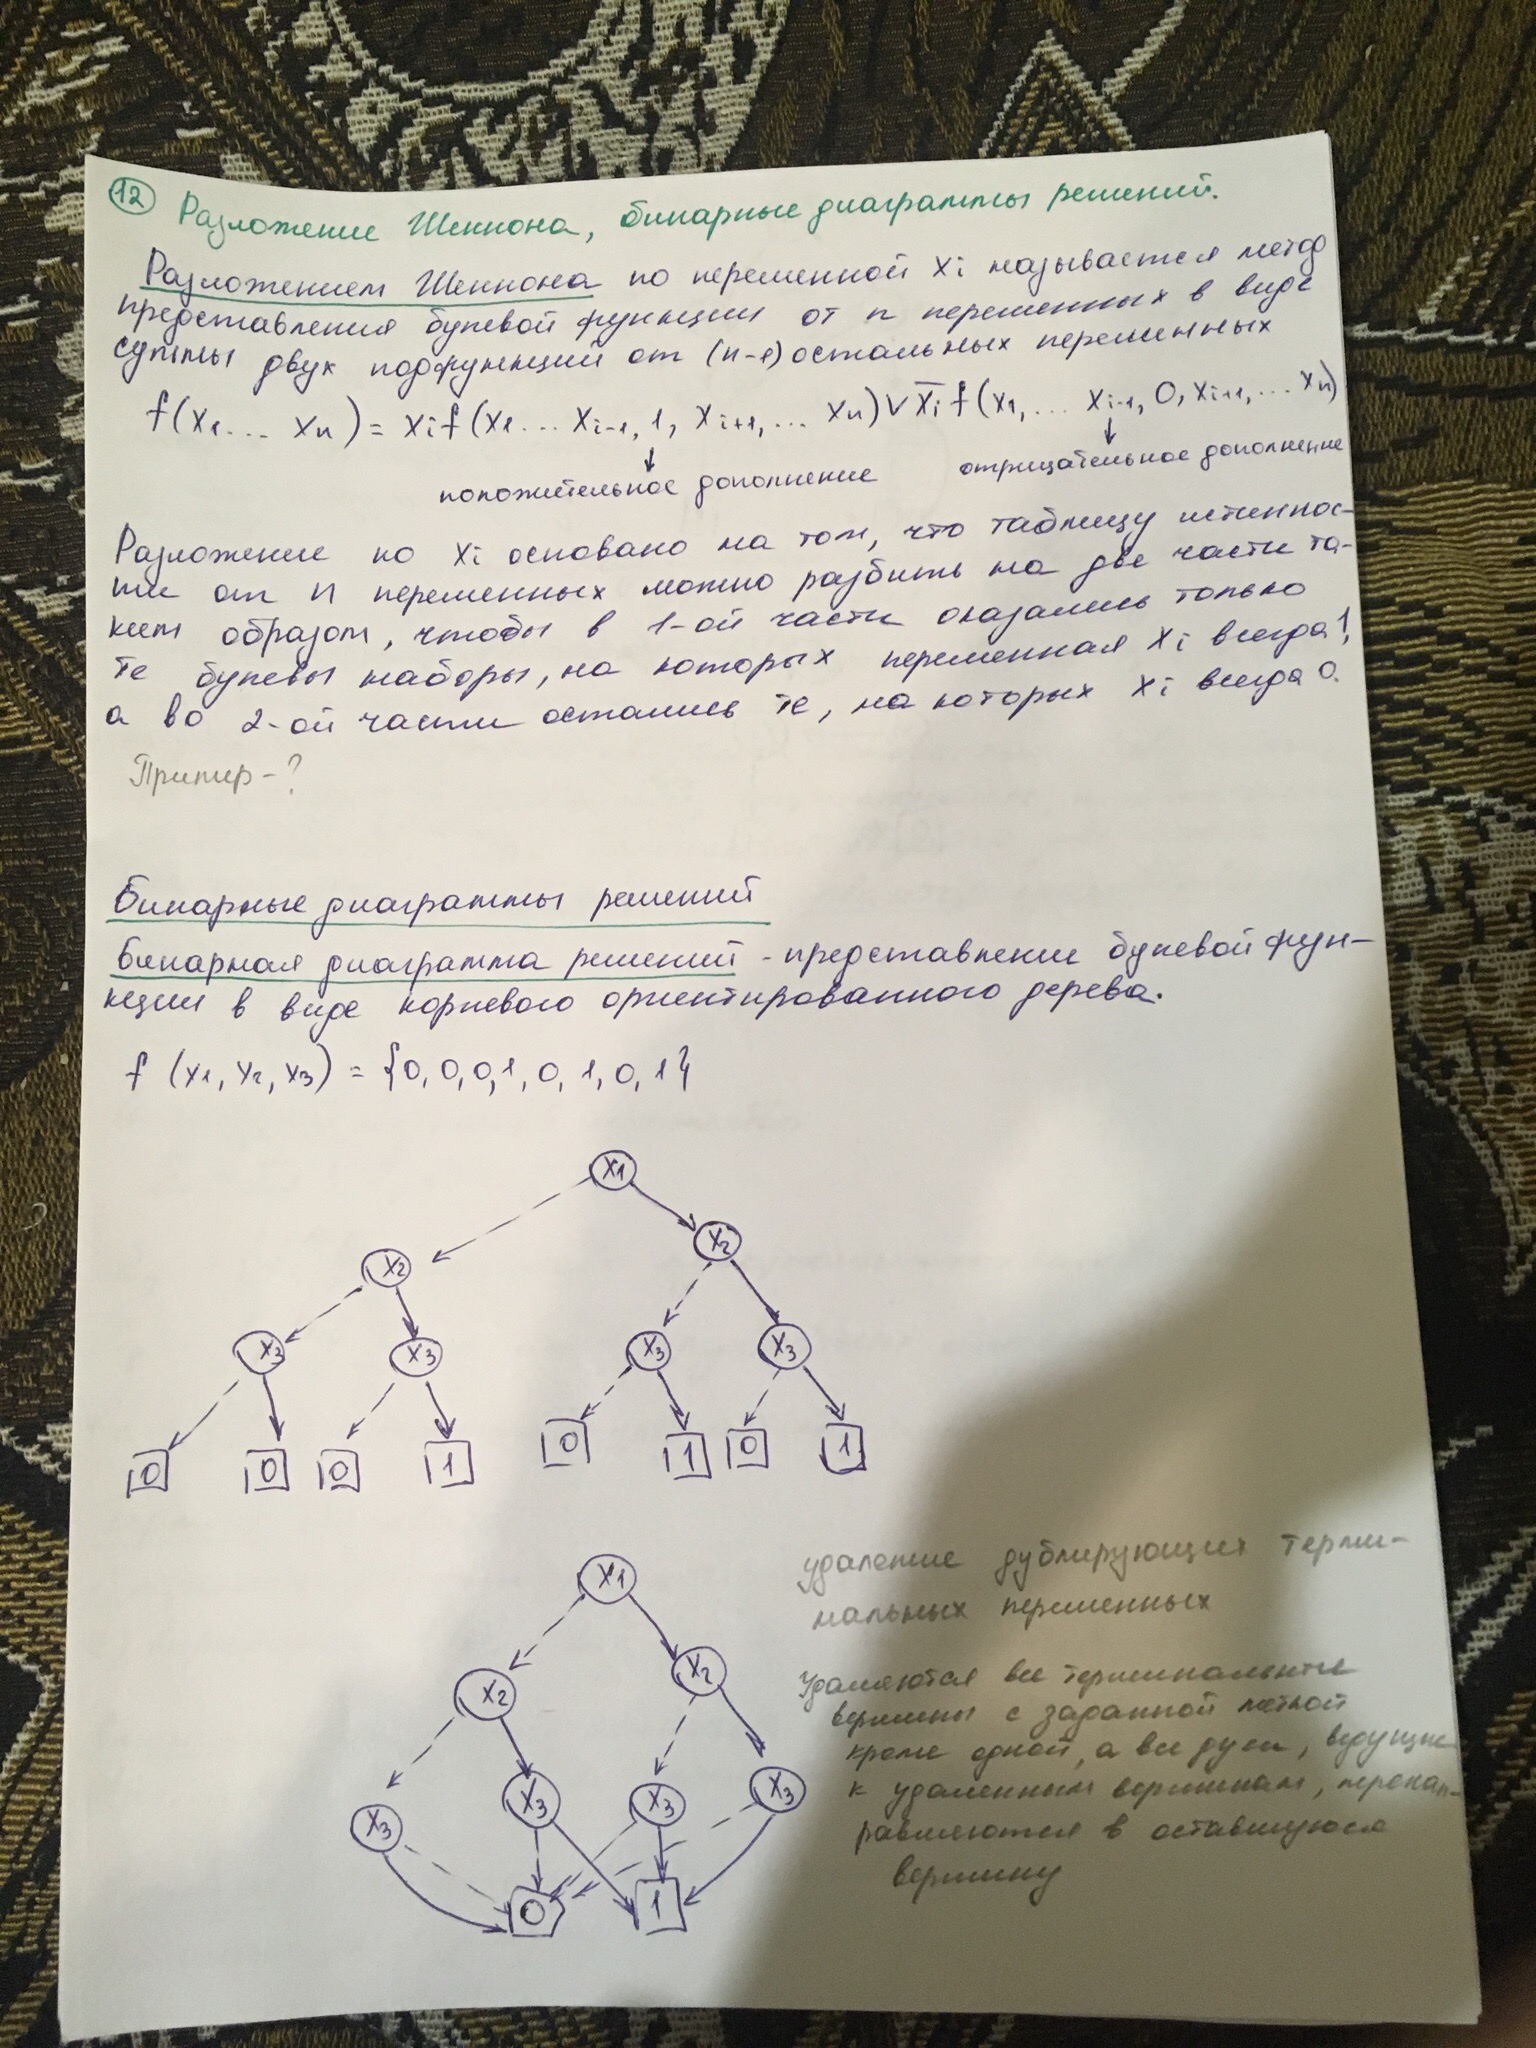 12 Разложение Шеннона, бинарные диаграммы решений.
Разложением Шеннона по переменной xi называется метод
представления булевой функции от n переменных в виде
суммы двух подфункций от (n-1) остальных переменных
f(x1... xn) = xi f(x1... xi-1, 1, xi+1, ... xn) ∨ x̄i f(x1, ... xi-1, 0, xi+1, ... xn)
положительное дополнение отрицательное дополнение
Разложение по xi основано на том, что таблицу истиннос-
ти от n переменных можно разбить на две части та-
ким образом, чтобы в 1-ой части оказались только
те булевы наборы, на которых переменная xi всегда 1,
а во 2-ой части остались те, на которых xi всегда 0.
Пример - ?
Бинарные диаграммы решений
Бинарная диаграмма решений - представление булевой фун-
кции в виде корневого ориентированного дерева.
f (x1, x2, x3) = {0, 0, 0, 1, 0, 1, 0, 1}
x1
x2 x2
x3 x3 x3 x3
0 0 0 1 0 1 0 1
x1
x2 x2
x3 x3 x3 x3
0 1
удаление дублирующих терми-
нальных переменных
Удаляются все терминальные
вершины с заданной меткой
кроме одной, а все дуги, ведущие
к удаленным вершинам, перенап-
равляются в оставшуюся
вершину